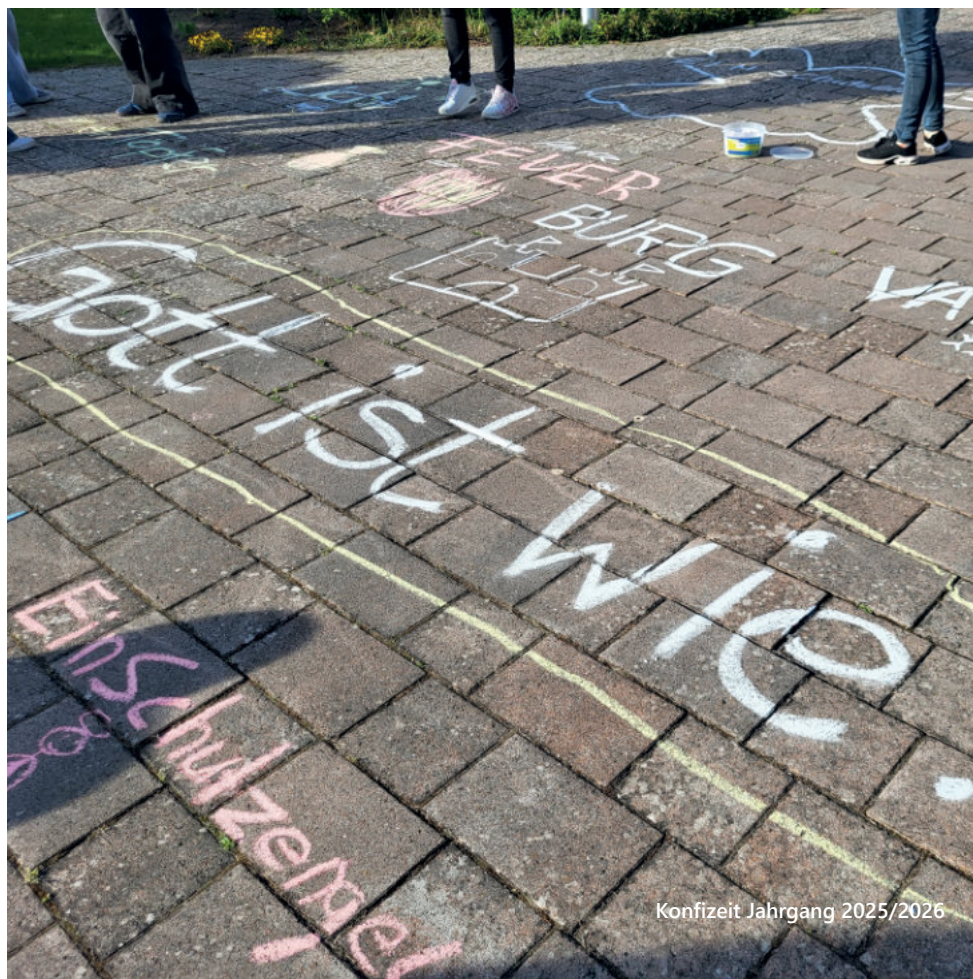 FEUER
BURG
VA
Gott ist wie
Ein Schutzengel
Konfizeit Jahrgang 2025/2026